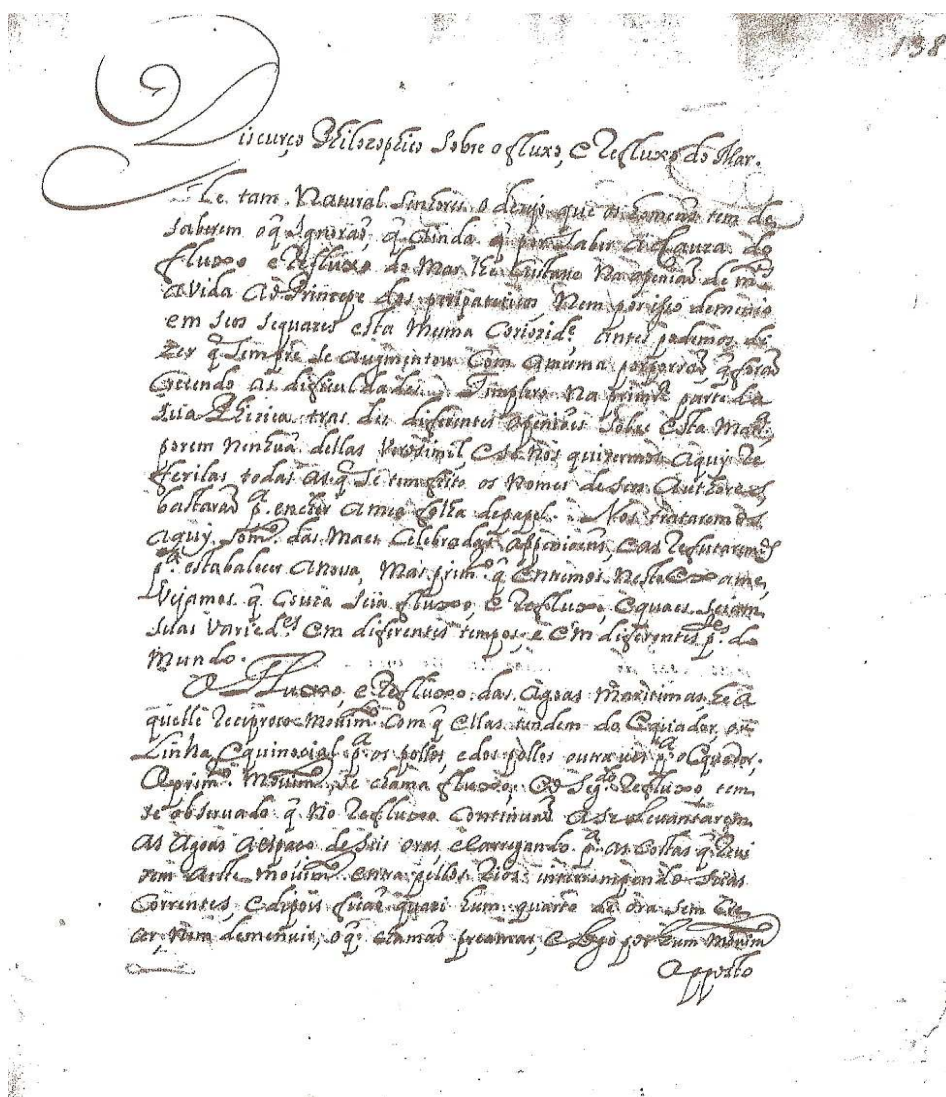 138
Discurço Philozophico Sobre o fluxo, e Refluxo do Mar.
He tam Natural Senhores o dezejo que os homens tem de
saberem oq̃ Ignoraõ, q̃ Ainda q̃ por saber a Cauza do
fluxo e Refluxo do Mar lhe Custase Na openiaõ de m.tos
a Vida Ao Principe dos peripateticos, Nem por iso demenio
em seos sequazes esta mesma Coriozid.e, antes podemos di
zer q̃ Sempre se Augmentou Com a mesma porporsaõ, q̃ foraõ
Crecendo as dificuldades. Timplero Na primr.a parte da
sua Phizica tras des diferentes openioes Sobre Esta Mat.a
porem Nenhuã dellas Verosimil, e se Nos quizermos Aquy Re
ferilas todas as q̃ se tem feito os Nomes de seos Authores
bastaraõ p.a encher a meo folha depapel. Nos trataremos
aquy som.e das Maes Celebradas Appenioens, e as Refutaremos
p.a estabalecer a Nova, Mas prim.o q̃ Entrimos Neste Exame,
Vejamos q̃ Couza seia fluxo, e Refluxo, e quaes seiam
suas Varied.es Em diferentes tempos, e Em diferentes p.es do
Mundo.
O Fluxo, e Refluxo das Agoas Maritimas, he a
quelle Reciproco Movim.o Com q̃ Ellas tendem do Equador, ou
Linha Equinosial p.a os pollos, e dos pollos outra ves p.a o Equador.
O prim.o Movim.o se chama fluxo, e o Seg.do Refluxo, tem
se observado q̃ No Refluxo Continuaõ A se levantarem
As Agoas A espaço de Seis oras, e Carregando p.a as Costas q̃
Movim.o entra pellos Rios interrompendo suas
Correntes, e dipois ficaõ quazi hum quarto de ora sem Cre
cer, Nem demenuir, oq̃ chamaõ preamar, e logo por hum Movim.o
Opposto